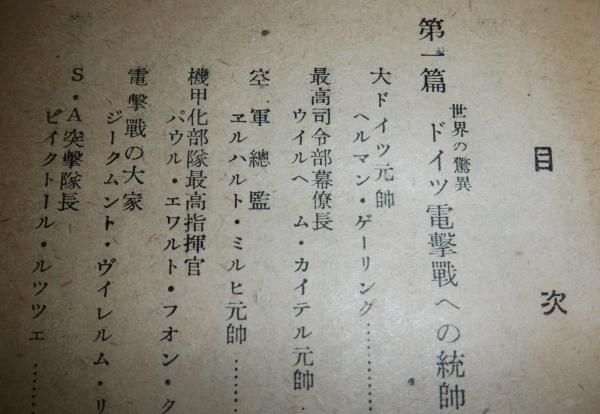 目次
第一篇 世界の驚異 ドイツ電撃戰への統帥
大ドイツ元帥
ヘルマン・ゲーリング………
最高司令部幕僚長
ウイルヘム・カイテル元帥…
空軍總監
ヱルハルト・ミルヒ元帥……
機甲化部隊最高指揮官
パウル・エワルト・フオン・ク
電撃戰の大家
ジークムント・ヴイレルム・リ
S・A突撃隊長
ビイクトール・ルツツェ……